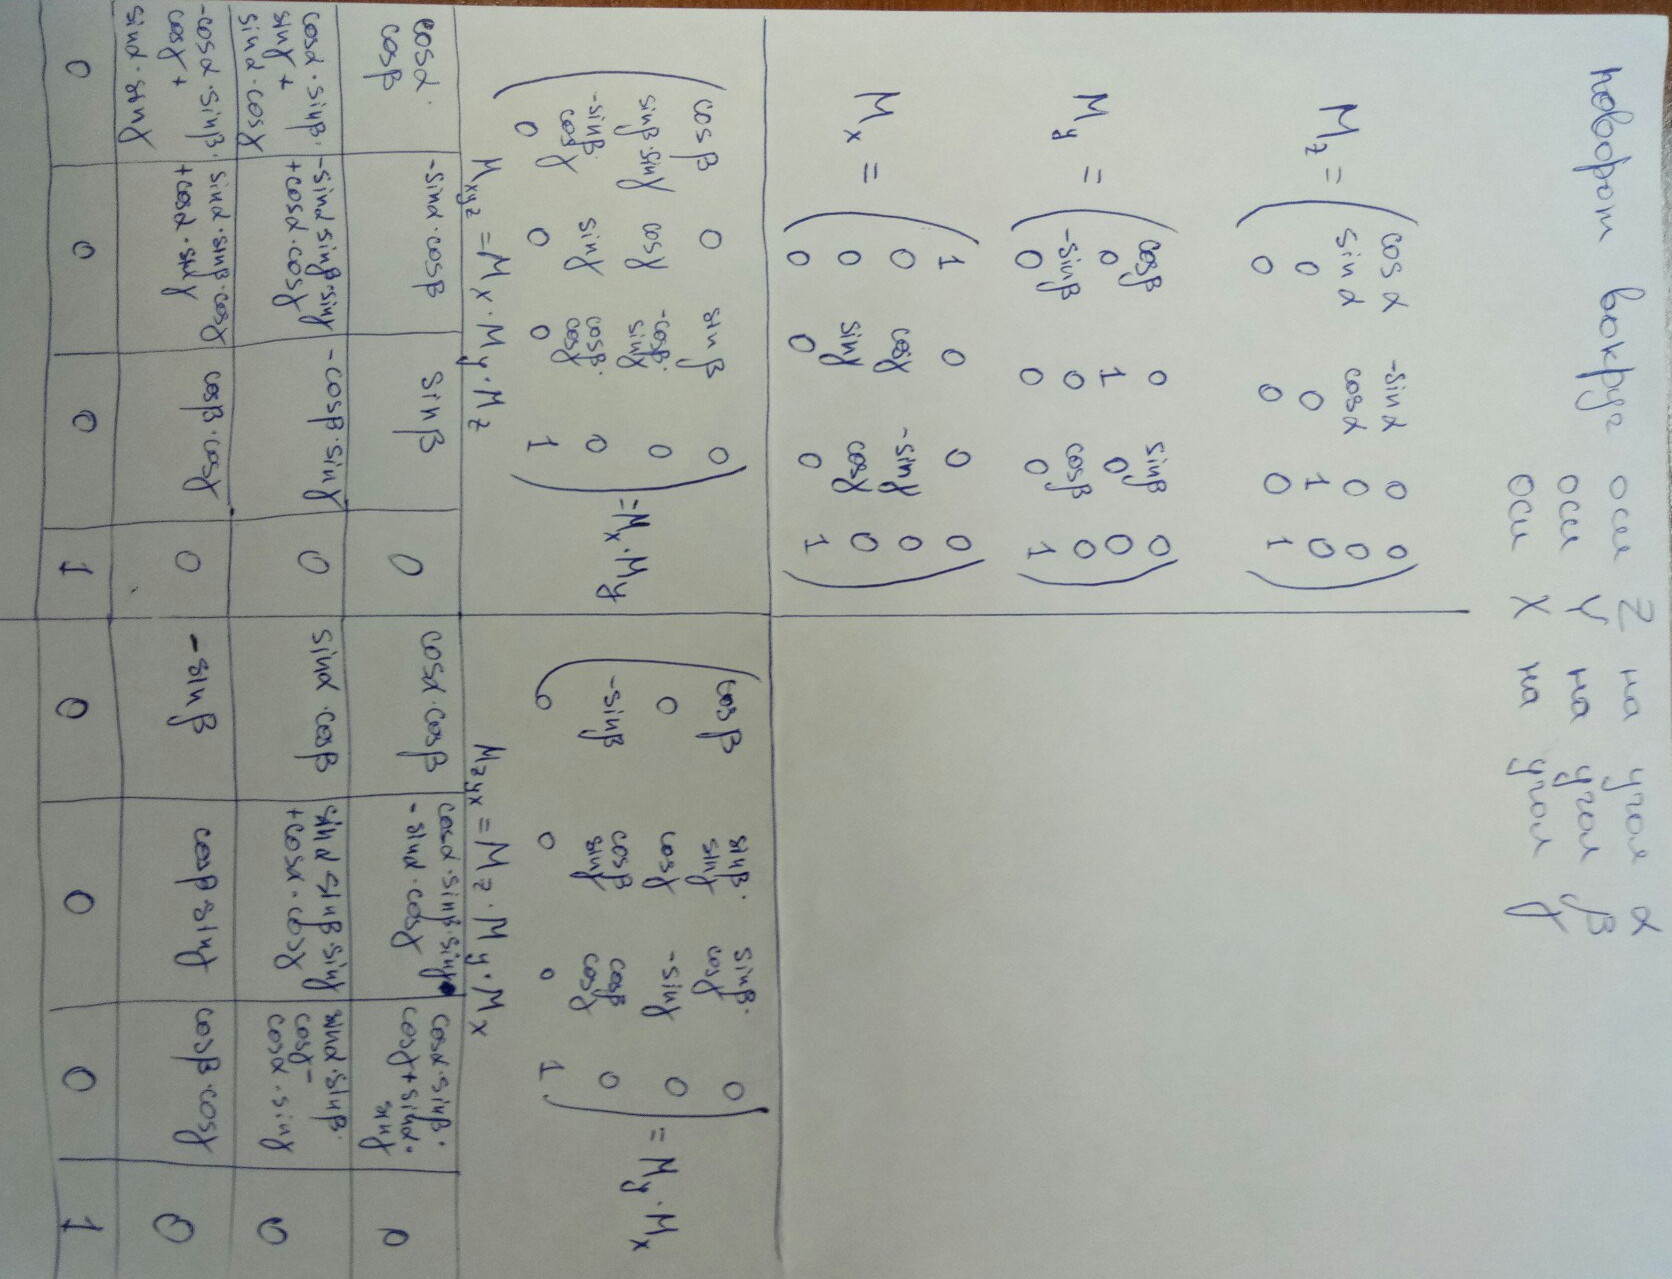 поворот вокруг оси Z на угол α
оси Y на угол β
оси X на угол γ
M_z = ( cos α -sin α 0 0
sin α cos α 0 0
0 0 1 0
0 0 0 1 )
M_y = ( cos β 0 sin β 0
0 1 0 0
-sin β 0 cos β 0
0 0 0 1 )
M_x = ( 1 0 0 0
0 cos γ -sin γ 0
0 sin γ cos γ 0
0 0 0 1 )
( cos β 0 sin β 0
sin β · sin γ cos γ -cos β · sin γ 0
-sin β · cos γ sin γ cos β · cos γ 0
0 0 0 1 ) = M_x · M_y
M_xyz = M_x · M_y · M_z
cos α · cos β | -sin α · cos β | sin β | 0
cos α · sin β · sin γ + sin α · cos γ | -sin α sin β · sin γ + cos α · cos γ | -cos β · sin γ | 0
-cos α · sin β · cos γ + sin α · sin γ | sin α · sin β · cos γ + cos α · sin γ | cos β · cos γ | 0
0 | 0 | 0 | 1
( cos β sin β · sin γ sin β · cos γ 0
0 cos γ -sin γ 0
-sin β cos β sin γ cos β cos γ 0
0 0 0 1 ) = M_y · M_x
M_zyx = M_z · M_y · M_x
cos α · cos β | cos α · sin β · sin γ - sin α · cos γ | cos α · sin β · cos γ + sin α · sin γ | 0
sin α · cos β | sin α sin β · sin γ + cos α · cos γ | sin α · sin β · cos γ - cos α · sin γ | 0
-sin β | cos β sin γ | cos β · cos γ | 0
0 | 0 | 0 | 1